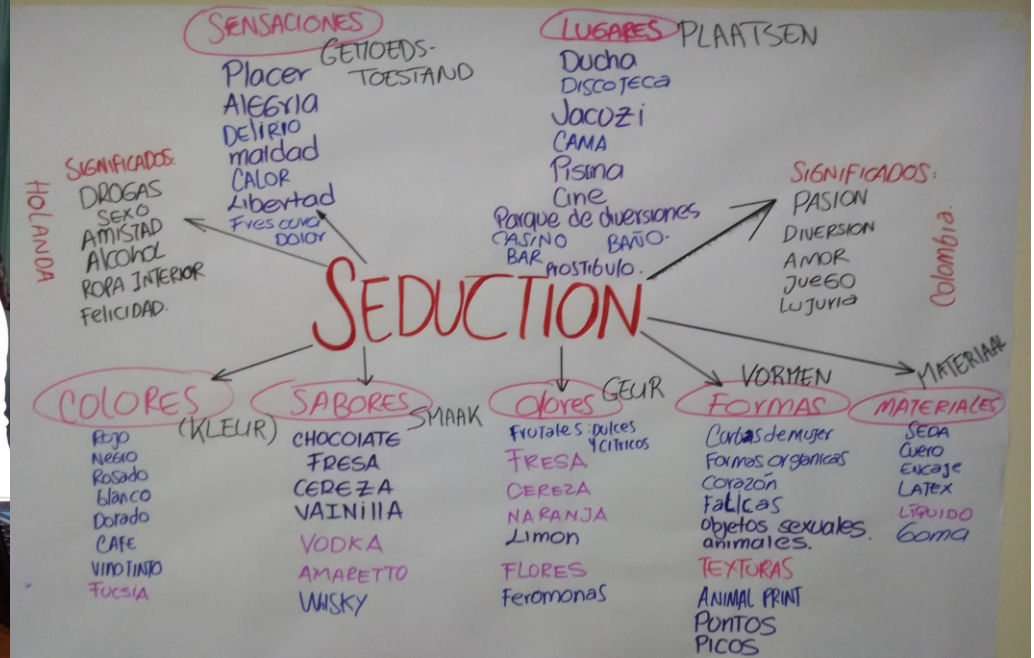 SENSACIONES
GEMOEDS-
TOESTAND
Placer
AlEGRIA
DELIRIO
maldad
CALOR
Libertad
Frescura
DOlOR
LUGARES PLAATSEN
Ducha
DISCOTECA
Jacozi
CAMA
Pisina
Cine
Parque de diversiones
CASINO BAÑO.
BAR PROSTIBULO.
HOLANDA
SIGNIFICADOS:
DROGAS
SEXO
AMISTAD
AlcoHOL
ROPA INTERIOR
FeliCIDAD.
SIGNIFICADOS:
PASION
DIVERSION
AMOR
JUEGO
LUJURIA
Colombia.
SEDUCTION
COLORES
(KLEUR)
ROJO
NEGRO
Rosado
blanco
Dorado
CAFE
VINO TINTO
FUCSIA
SABORES
SMAAK
CHOCOlATE
FRESA
CEREZA
VAINIllA
VODKA
AMARETTO
WHISKY
Olores
GEUR
FRUTALES: DULCES
Y CITRICOS
FRESA
CEREZA
NARANJA
LIMON
FLORES
Feromonas
FORMAS
VORMEN
Curbas de mujer
Formas organicas
Corazón
FALICAS
Objetos sexuales.
animales.
TEXTURAS
ANIMAL PRINT
PUNTOS
PICOS
MATERIALES
MATERIAAL
SEDA
Cuero
ENCAJE
LATEX
LÍQUIDO
Goma